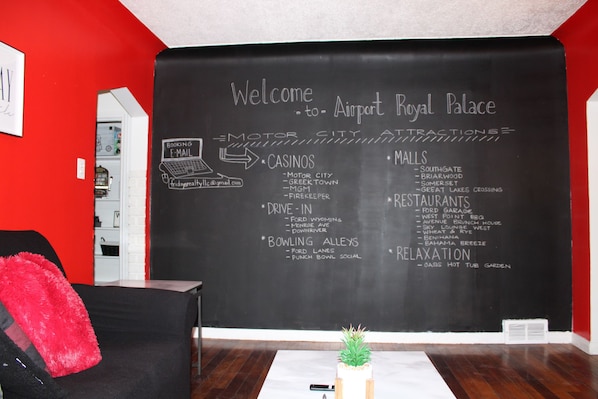 AY
Welcome
-to- Airport Royal Palace
MOTOR CITY ATTRACTIONS
BOOKING
E-MAIL
* CASINOS
- MOTOR CITY
- GREEKTOWN
- MGM
- FIREKEEPER
* DRIVE-IN
- FORD WYOMING
- MONROE AVE
- DOWNRIVER
* BOWLING ALLEYS
- FORD LANES
- PUNCH BOWL SOCIAL
* MALLS
- SOUTHGATE
- BRIARWOOD
- SOMERSET
- GREAT LAKES CROSSING
* RESTAURANTS
- FORD GARAGE
- WEST POINT BBQ
- AVENUE BRUNCH HOUSE
- SKY LOUNGE WEST
- WHEAT & RYE
- BENIHANA
- BAHAMA BREEZE
* RELAXATION
- OASIS HOT TUB GARDEN